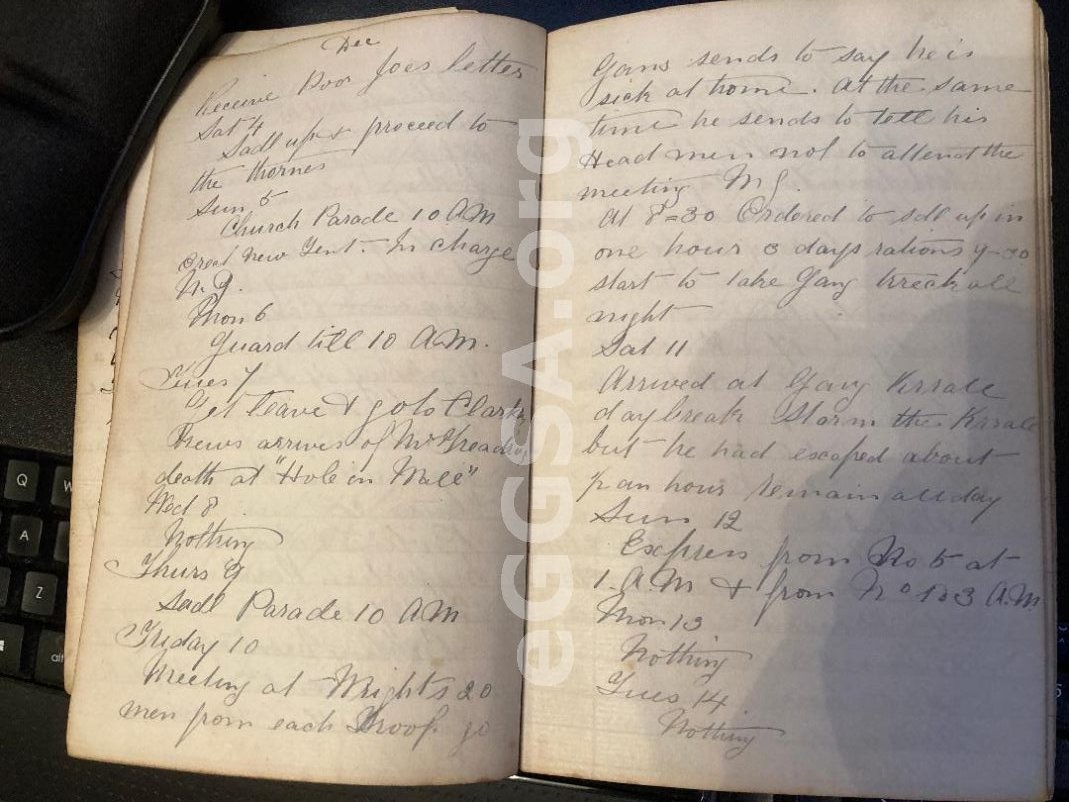 Dec
Receive Poor Joes letter
Sat 4
Sadl up & proceed to
the Thornes
Sun 5
Church Parade 10 A.M
Erect New Tent. In charge
N.G.
Mon 6
Guard till 10 A.M.
Tues 7
Get leave & go to Clarks
News arrives of
death at "Hole in Wall"
Wed 8
Nothing
Thurs 9
Sadl Parade 10 AM
Friday 10
Meeting at Wrights 20
men from each Troop go
Gans sends to say he is
sick at home. At the same
time he sends to tell his
Head men not to attend the
meeting
At 8=30 Ordered to sdl up in
one hour 3 days rations 9-30
start to take Gang treck all
night
Sat 11
Arrived at Gang Krrale
daybreak Storm the Krrale
but he had escaped about
½ an hour remain all day
Sun 12
Express from No 5 at
1. A.M & from No 1 3 A.M
Mon 13
Nothing
Tues 14
Nothing
eGGSA.org
Q
W
A
Z
alt